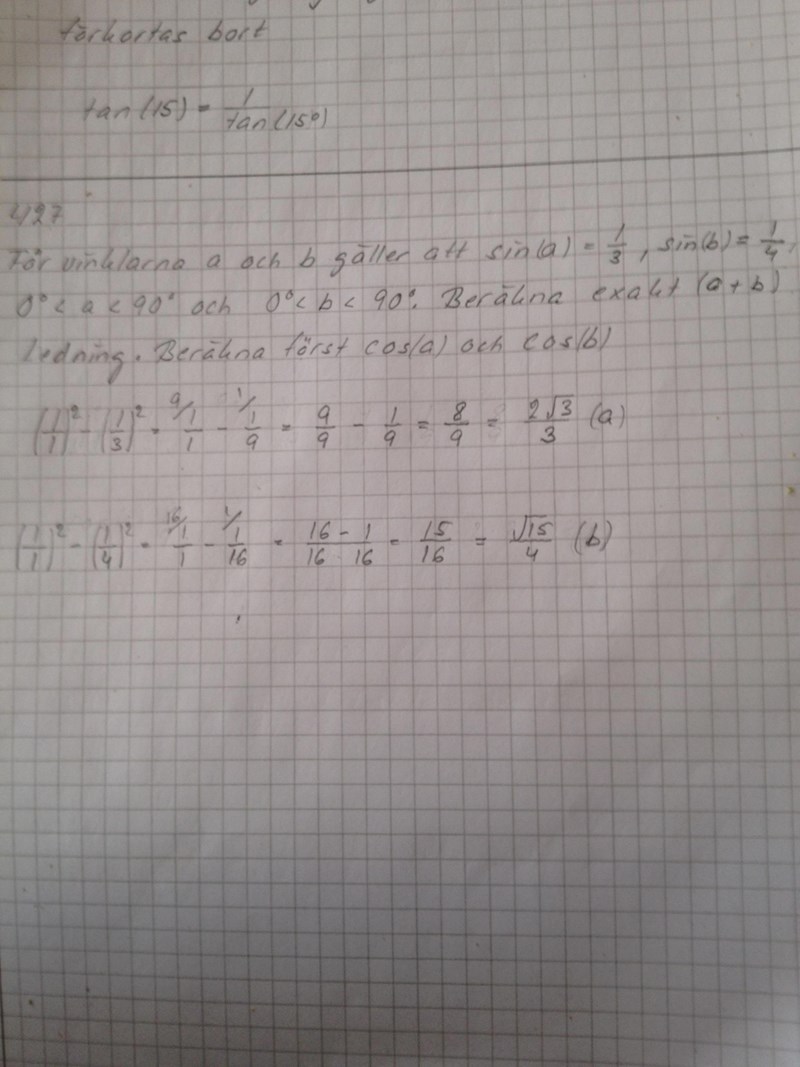 förkortas bort
tan(15) = 1/tan(15°)
4127
För vinklarna a och b gäller att sin(a) = 1/3, sin(b) = 1/4,
0° < a < 90° och 0° < b < 90°. Beräkna exakt (a + b)
ledning. Beräkna först cos(a) och cos(b)
(1/1)² - (1/3)² = 9/ 1/1 - 1/ 1/9 = 9/9 - 1/9 = 8/9 = 2√3/3 (a)
(1/1)² - (1/4)² = 16/ 1/1 - 1/ 1/16 = 16 - 1/16 16 = 15/16 = √15/4 (b)